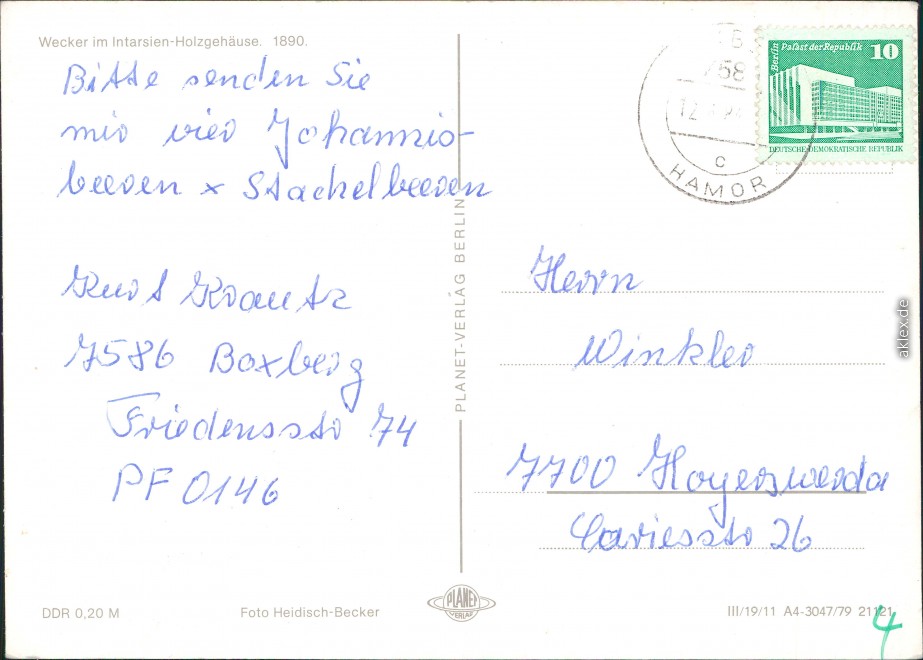 Wecker im Intarsien-Holzgehäuse. 1890.
Bitte senden Sie
mir vier Johannis-
beeren x Stachelbeeren
Kurt Krautz
7586 Boxberg
Friedensstr 74
PF 0146
DDR 0,20 M
Foto Heidisch-Becker
PLANET-VERLAG BERLIN
PLANET
VERLAG
Berlin
Palast der Republik
10
DEUTSCHE DEMOKRATISCHE REPUBLIK
758
12
c
HAMOR
Herrn
Winkler
7700 Hoyerswerda
26
III/19/11 A4-3047/79 21121
4
aklex.de